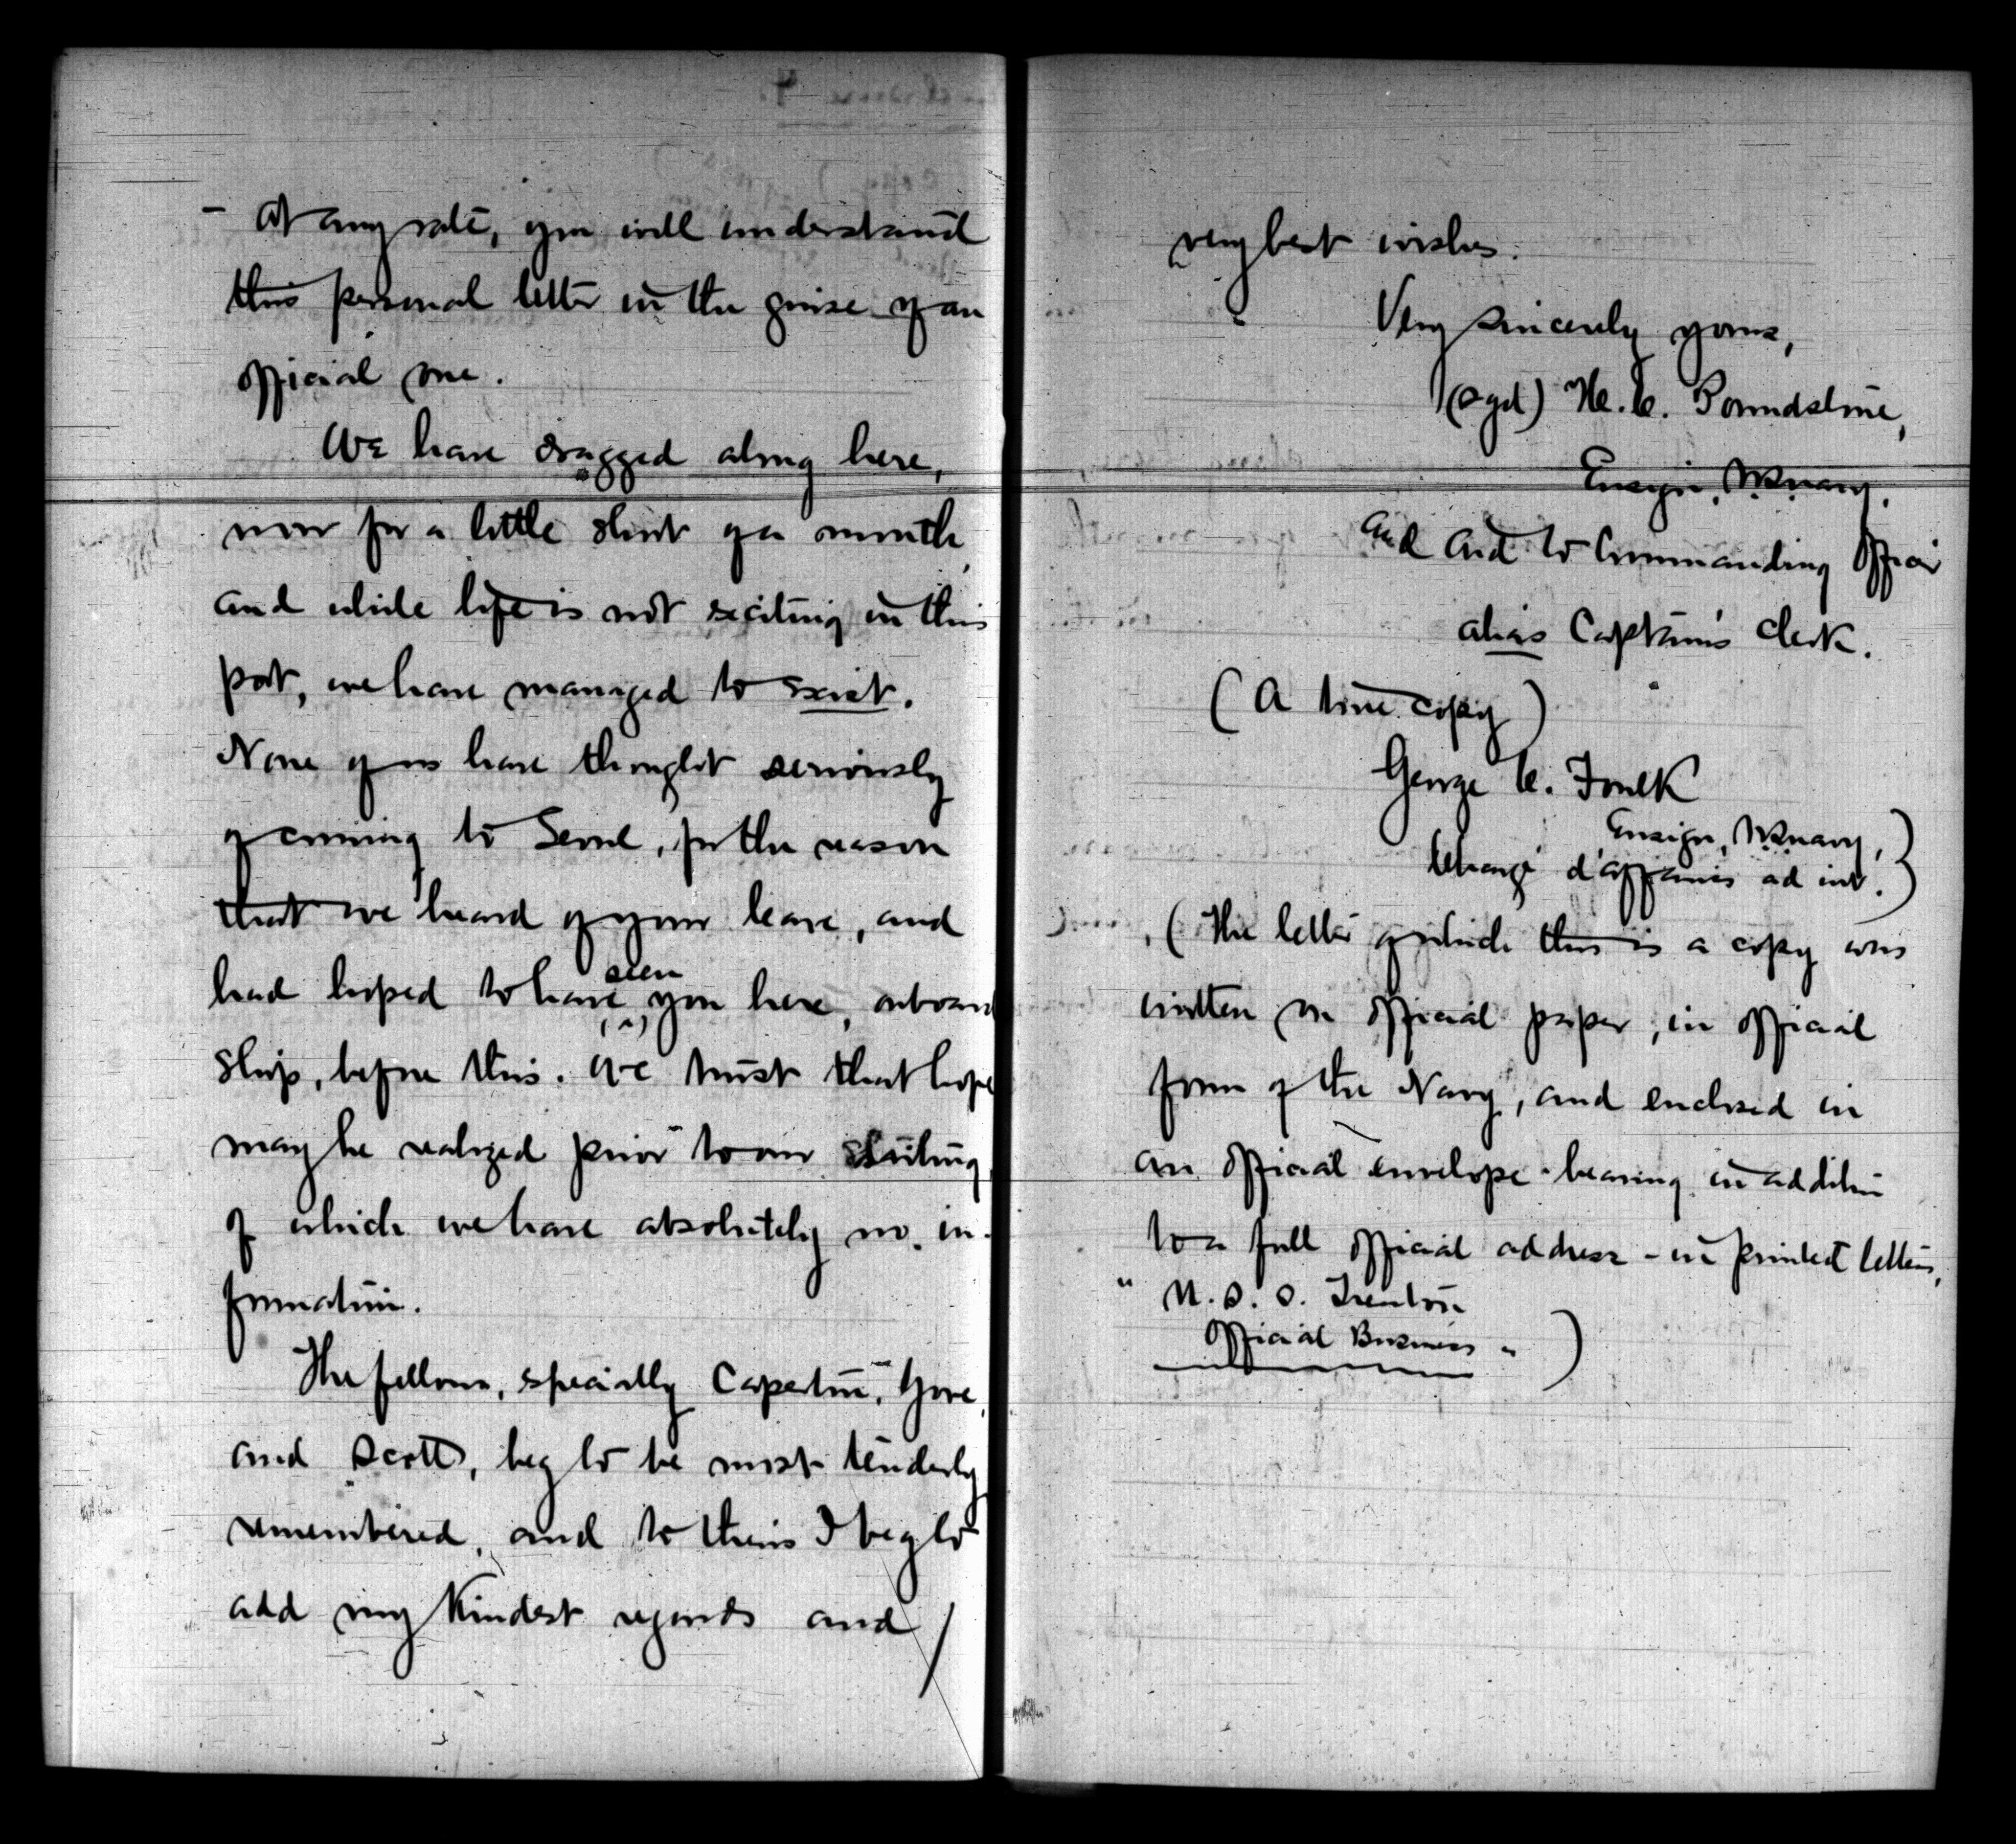 - At any rate, you will understand
this personal letter in the guise of an
official one.
We have dragged along here,
now for a little short of a month,
and while life is not exciting in this
port, we have managed to exist.
None of us have thought seriously
of coming to Seoul, for the reason
that we heard of your leave, and
had hoped to have seen you here, onboard
ship, before this. We trust that hope
may be realized prior to our sailing
of which we have absolutely no in-
formation.
The fellows, specially Caperton, Gove,
and Scott, beg to be most tenderly
remembered, and to theirs I beg to
add my kindest regards and
very best wishes.
Very sincerely yours,
(sgd) H. C. Poundstone,
Ensign, U.S. Navy.
and Aid to Commanding Officer
alias Captain's Clerk.
(A true copy)
George C. Foulk
Ensign, U.S. Navy,
Chargé d'affaires ad int.
(The letter of which this is a copy was
written on official paper, in official
form of the Navy, and enclosed in
an official envelope - bearing in addition
to a full official address - in printed letters,
" U.S.S. Trenton
Official Business ")